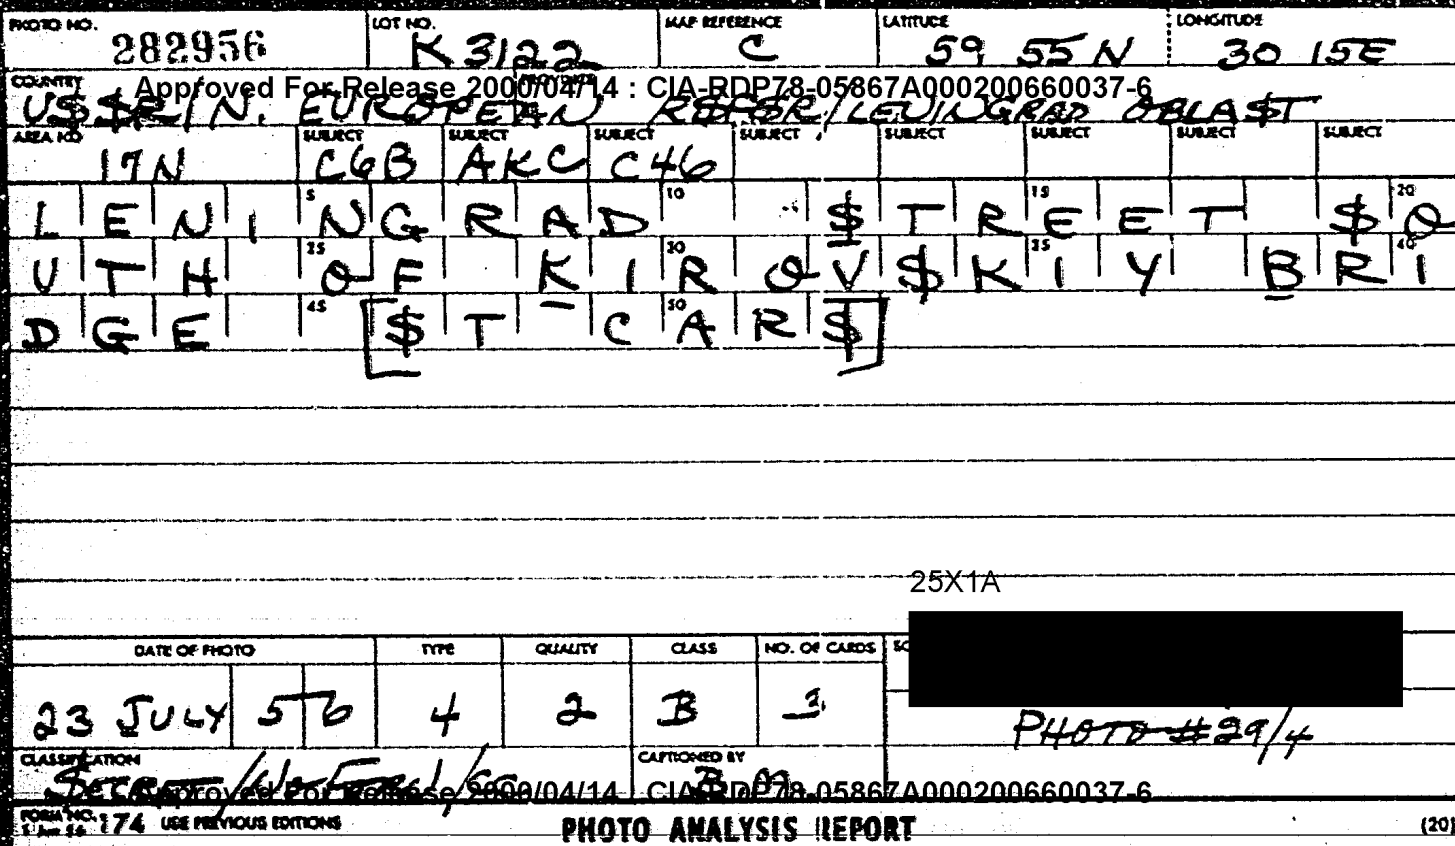 PHOTO NO. 282956 LOT NO. K 3122 MAP REFERENCE C LATITUDE 59 55 N LONGITUDE 30 15E
Approved For Release 2000/04/14 : CIA-RDP78-05867A000200660037-6
COUNTRY U$$R/N. EUROPEAN R$F$R/LENINGRAD OBLA$T
AREA NO 17N SUBJECT C6B SUBJECT AKC SUBJECT C46 SUBJECT SUBJECT SUBJECT SUBJECT SUBJECT
5 10 15 20
LENINGRAD $TREET $O
25 30 35 40
UTH OF KIROV$KIY BRI
45 50
DGE [$T CAR$]
25X1A
DATE OF PHOTO TYPE QUALITY CLASS NO. OF CARDS
23 JULY 56 4 2 B 3
PHOTO #29/4
CLASSIFICATION CAPTIONED BY
Secret/No B M
Approved For Release 2000/04/14 : CIA-RDP78-05867A000200660037-6
FORM NO. 174 USE PREVIOUS EDITIONS PHOTO ANALYSIS REPORT (20)